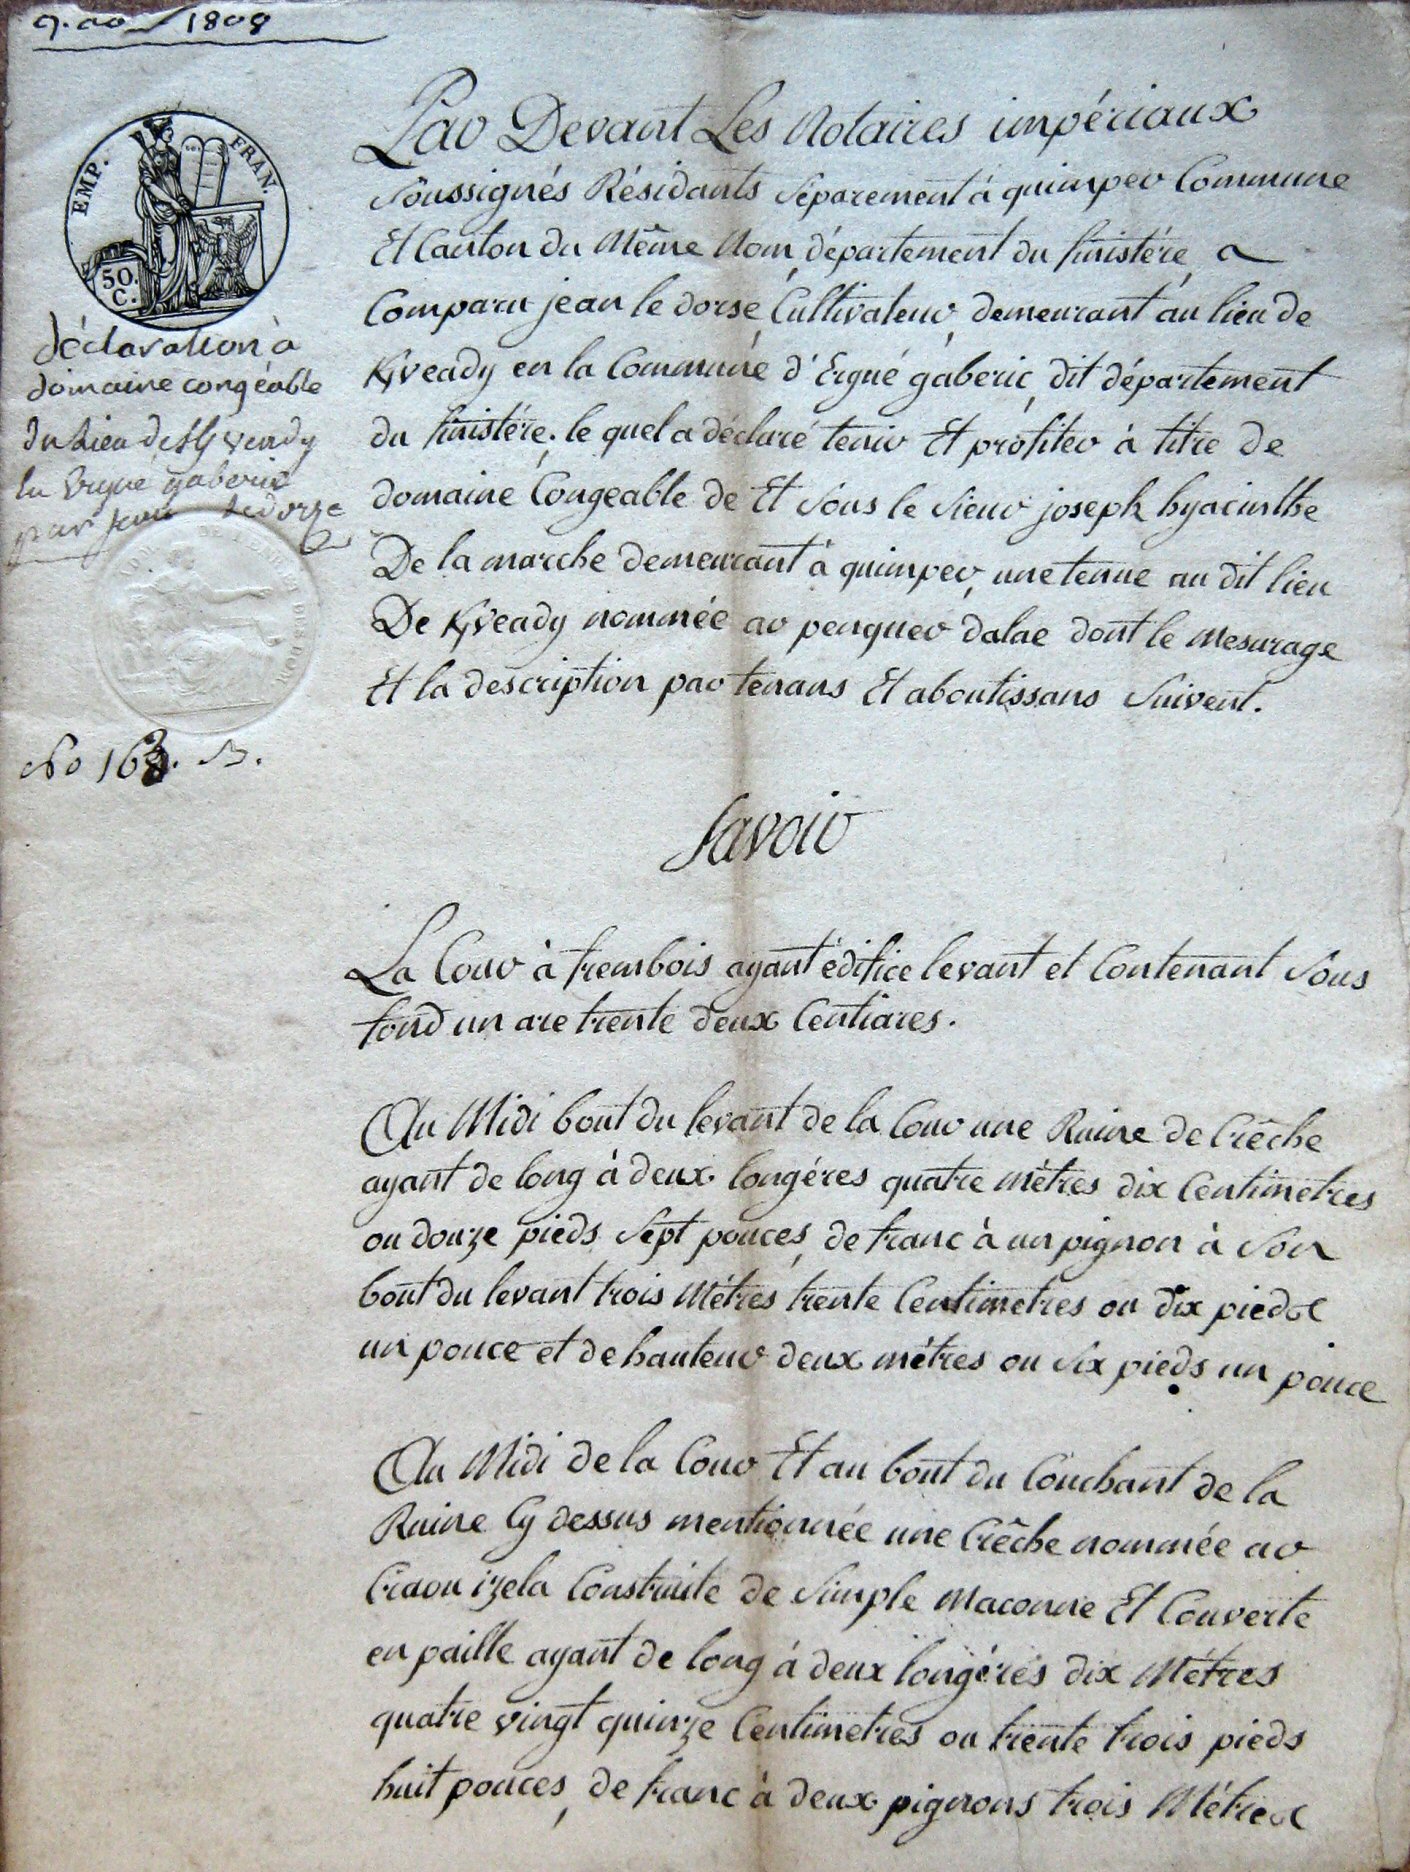 9. ao 1808
EMP. FRAN.
50. C.
déclaration à
domaine congéable
du Lieu de Kvready
en Ergué gaberic
par jean Ledorze
No 163. B.
Par Devant Les Notaires impériaux
Soussignés Résidants Séparement à quimper Commune
Et Canton du Même Nom, département du finistére, a
Comparu jean le dorse, Cultivateur, demeurant au lieu de
Kvready en la Commune d'Ergué gaberic, dit département
du finistére, le quel a déclaré tenir Et profiter à titre de
domaine Congeable de Et Sous le Sieur joseph hyacinthe
De la marche demeurant à quimper, une tenue au dit lieu
De Kvready nommée ar penquer dalae dont le mesurage
Et la description par tenans Et aboutissans Suivent.
Savoir
La Cour à frembois ayant édifice levant et Contenant Sous
fond un are trente deux Centiares.
Au Midi bout du levant de la Cour une Ruine de Crêche
ayant de long à deux longéres quatre métres dix Centimetres
ou douze pieds Sept pouces, de franc à un pignon à Son
bout du levant trois Métres trente Centimetres ou dix pieds
un pouce et de hauteur deux métres ou Six pieds un pouce
Au Midi de la Cour Et au bout du Couchant de la
Ruine Cy dessus mentionnée une Crêche nommée ar
Craou izela Construite de Simple maconne Et Couverte
en paille ayant de long à deux longéres dix Métres
quatre vingt quinze Centimetres ou trente trois pieds
huit pouces, de franc à deux pignons trois Métres